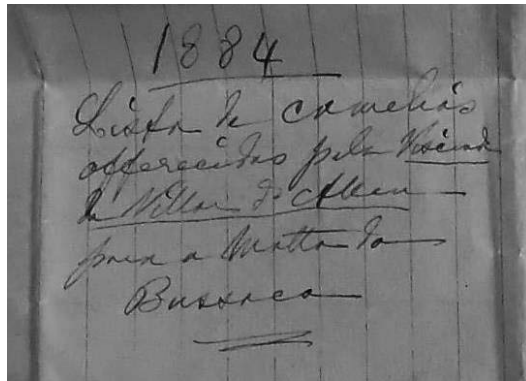 1884
Lista de camelias
offerecidas pelo Visconde
de Villar d'Allen
para a Matta do
Bussaco